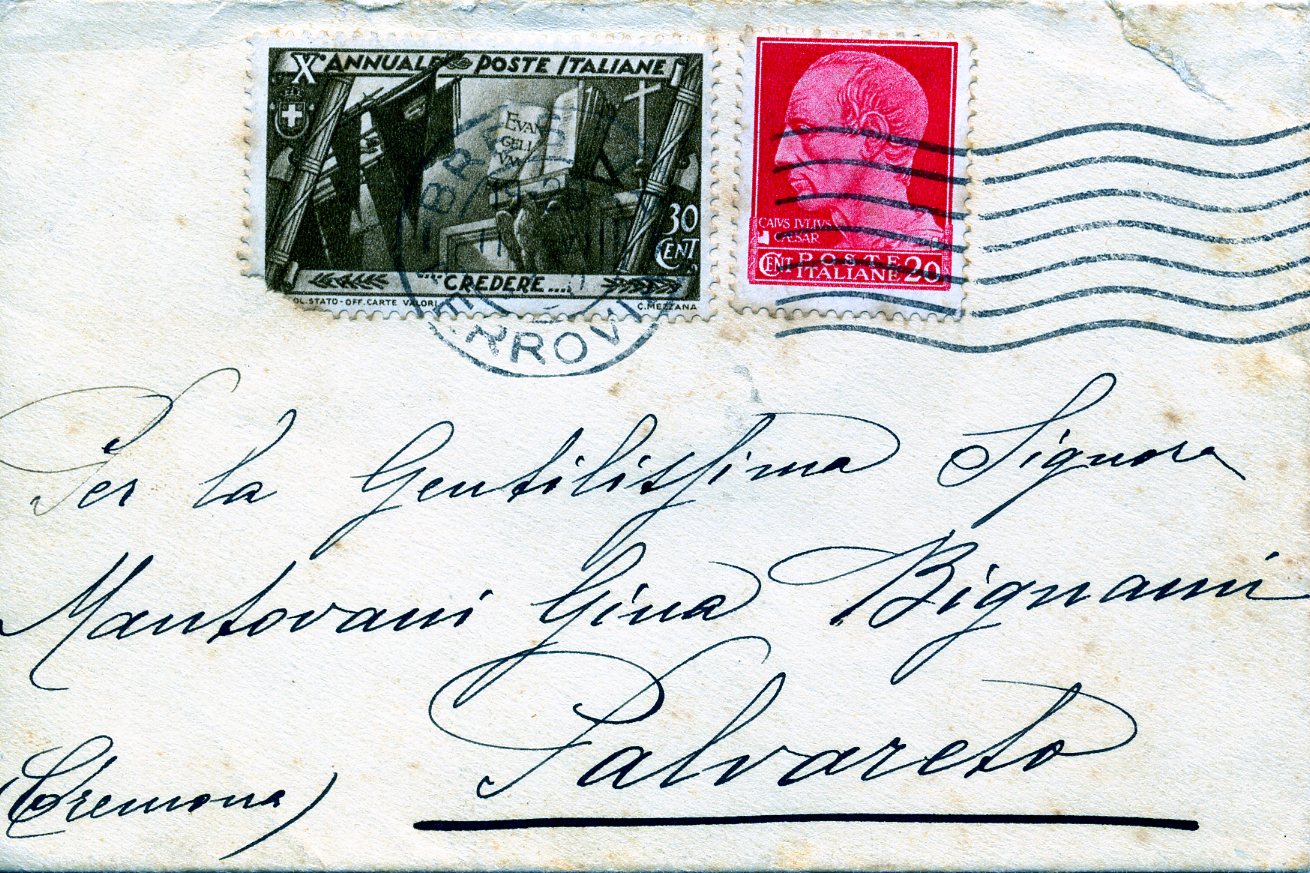 X° ANNUALE POSTE ITALIANE
EVAN
GELI
VM
30
CENT
....CREDERE....
POL. STATO - OFF. CARTE VALORI
C. MEZZANA
CAIVS IVLIVS
CÆSAR
CENT POSTE ITALIANE 20
BRE
FERROVI
Per la Gentilissima Signora
Mantovani Gina Bignami
Calvareto
(Cremona)